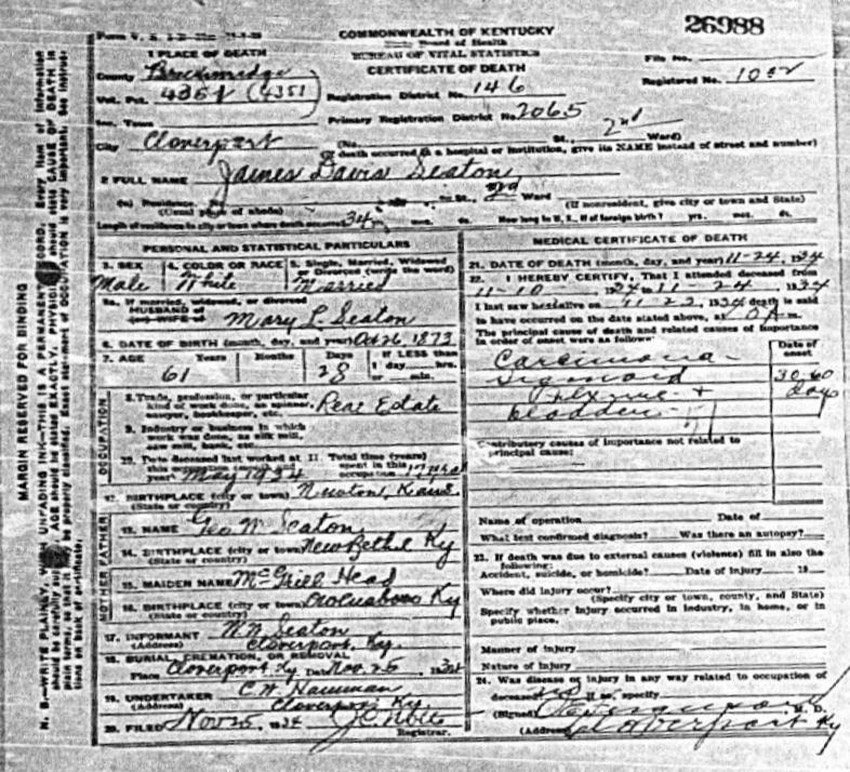 26988
COMMONWEALTH OF KENTUCKY
Board of Health
BUREAU OF VITAL STATISTICS
CERTIFICATE OF DEATH
1 PLACE OF DEATH
County Breckinridge
Vot. Pct. 4351 (4351)
Inc. Town
City Cloverport
File No.
Registered No.
Registration District No. 146
Primary Registration District No. 2065
(No. St., 2nd Ward)
(If death occurred in a hospital or institution, give its NAME instead of street and number)
2 FULL NAME James Davis Seaton
(a) Residence. St., Ward (If nonresident, give city or town and State)
(Usual place of abode)
Length of residence in city or town where death occurred 34 mos. ds. How long in U. S., if of foreign birth? yrs. mos. ds.
PERSONAL AND STATISTICAL PARTICULARS
3. SEX Male
4. COLOR OR RACE White
5. Single, Married, Widowed or Divorced (write the word) Married
5a. If married, widowed, or divorced
HUSBAND of
(or) WIFE of Mary L. Seaton
6. DATE OF BIRTH (month, day, and year) Oct 26 1873
7. AGE Years 61 Months Days 28 If LESS than 1 day hrs. or min.
OCCUPATION
8. Trade, profession, or particular kind of work done, as spinner, sawyer, bookkeeper, etc. Real Estate
9. Industry or business in which work was done, as silk mill, saw mill, bank, etc.
10. Date deceased last worked at this occupation (month and year) May 1934
11. Total time (years) spent in this occupation 17 yrs
12. BIRTHPLACE (city or town) Newton, Kans.
(State or country)
FATHER
13. NAME Geo W Seaton
14. BIRTHPLACE (city or town) New Bethel Ky
(State or country)
MOTHER
15. MAIDEN NAME McGrill Head
16. BIRTHPLACE (city or town) Ky
(State or country)
17. INFORMANT W. N. Seaton
(Address) Cloverport, Ky.
18. BURIAL, CREMATION, OR REMOVAL
Place Cloverport Ky Date Nov. 25, 1934
19. UNDERTAKER C. W. Hamman
(Address) Cloverport Ky.
20. FILED Nov 25, 1934 J. C. Nolte
Registrar.
MEDICAL CERTIFICATE OF DEATH
21. DATE OF DEATH (month, day, and year) 11-24, 1934
22. I HEREBY CERTIFY, That I attended deceased from
11-10, 1934 to 11-24, 1934
I last saw h alive on 11-23, 1934 death is said
to have occurred on the date stated above, at m.
The principal cause of death and related causes of importance
in order of onset were as follows:
Date of onset
Carcinoma
Sigmoid
flexure +
bladder
30-60 days
Contributory causes of importance not related to
principal cause:
Name of operation Date of
What test confirmed diagnosis? Was there an autopsy?
23. If death was due to external causes (violence) fill in also the
following:
Accident, suicide, or homicide? Date of injury 19
Where did injury occur?
(Specify city or town, county, and State)
Specify whether injury occurred in industry, in home, or in
public place.
Manner of injury
Nature of injury
24. Was disease or injury in any way related to occupation of
deceased? If so, specify
(Signed) M. D.
(Address) Cloverport Ky
MARGIN RESERVED FOR BINDING